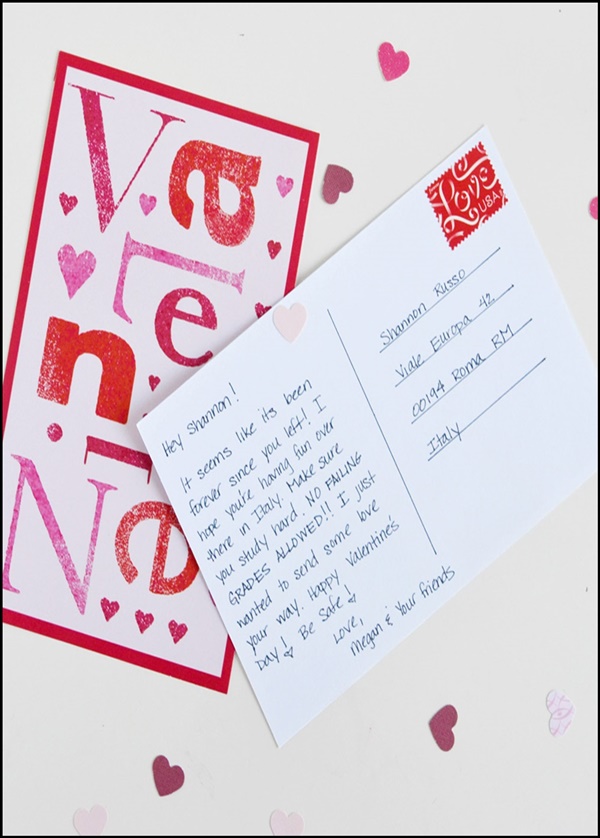 Va
le
n
i
N
e
Love
USA
Shannon Russo
Viale Europa 42
00194 Roma RM
Italy
Hey Shannon!
It seems like its been
forever since you left! I
hope you're having fun over
there in Italy. Make sure
you study hard. NO FAILING
GRADES ALLOWED!! I just
wanted to send some love
your way. Happy Valentines
Day! Be Safe!
Love,
Megan & Your friends